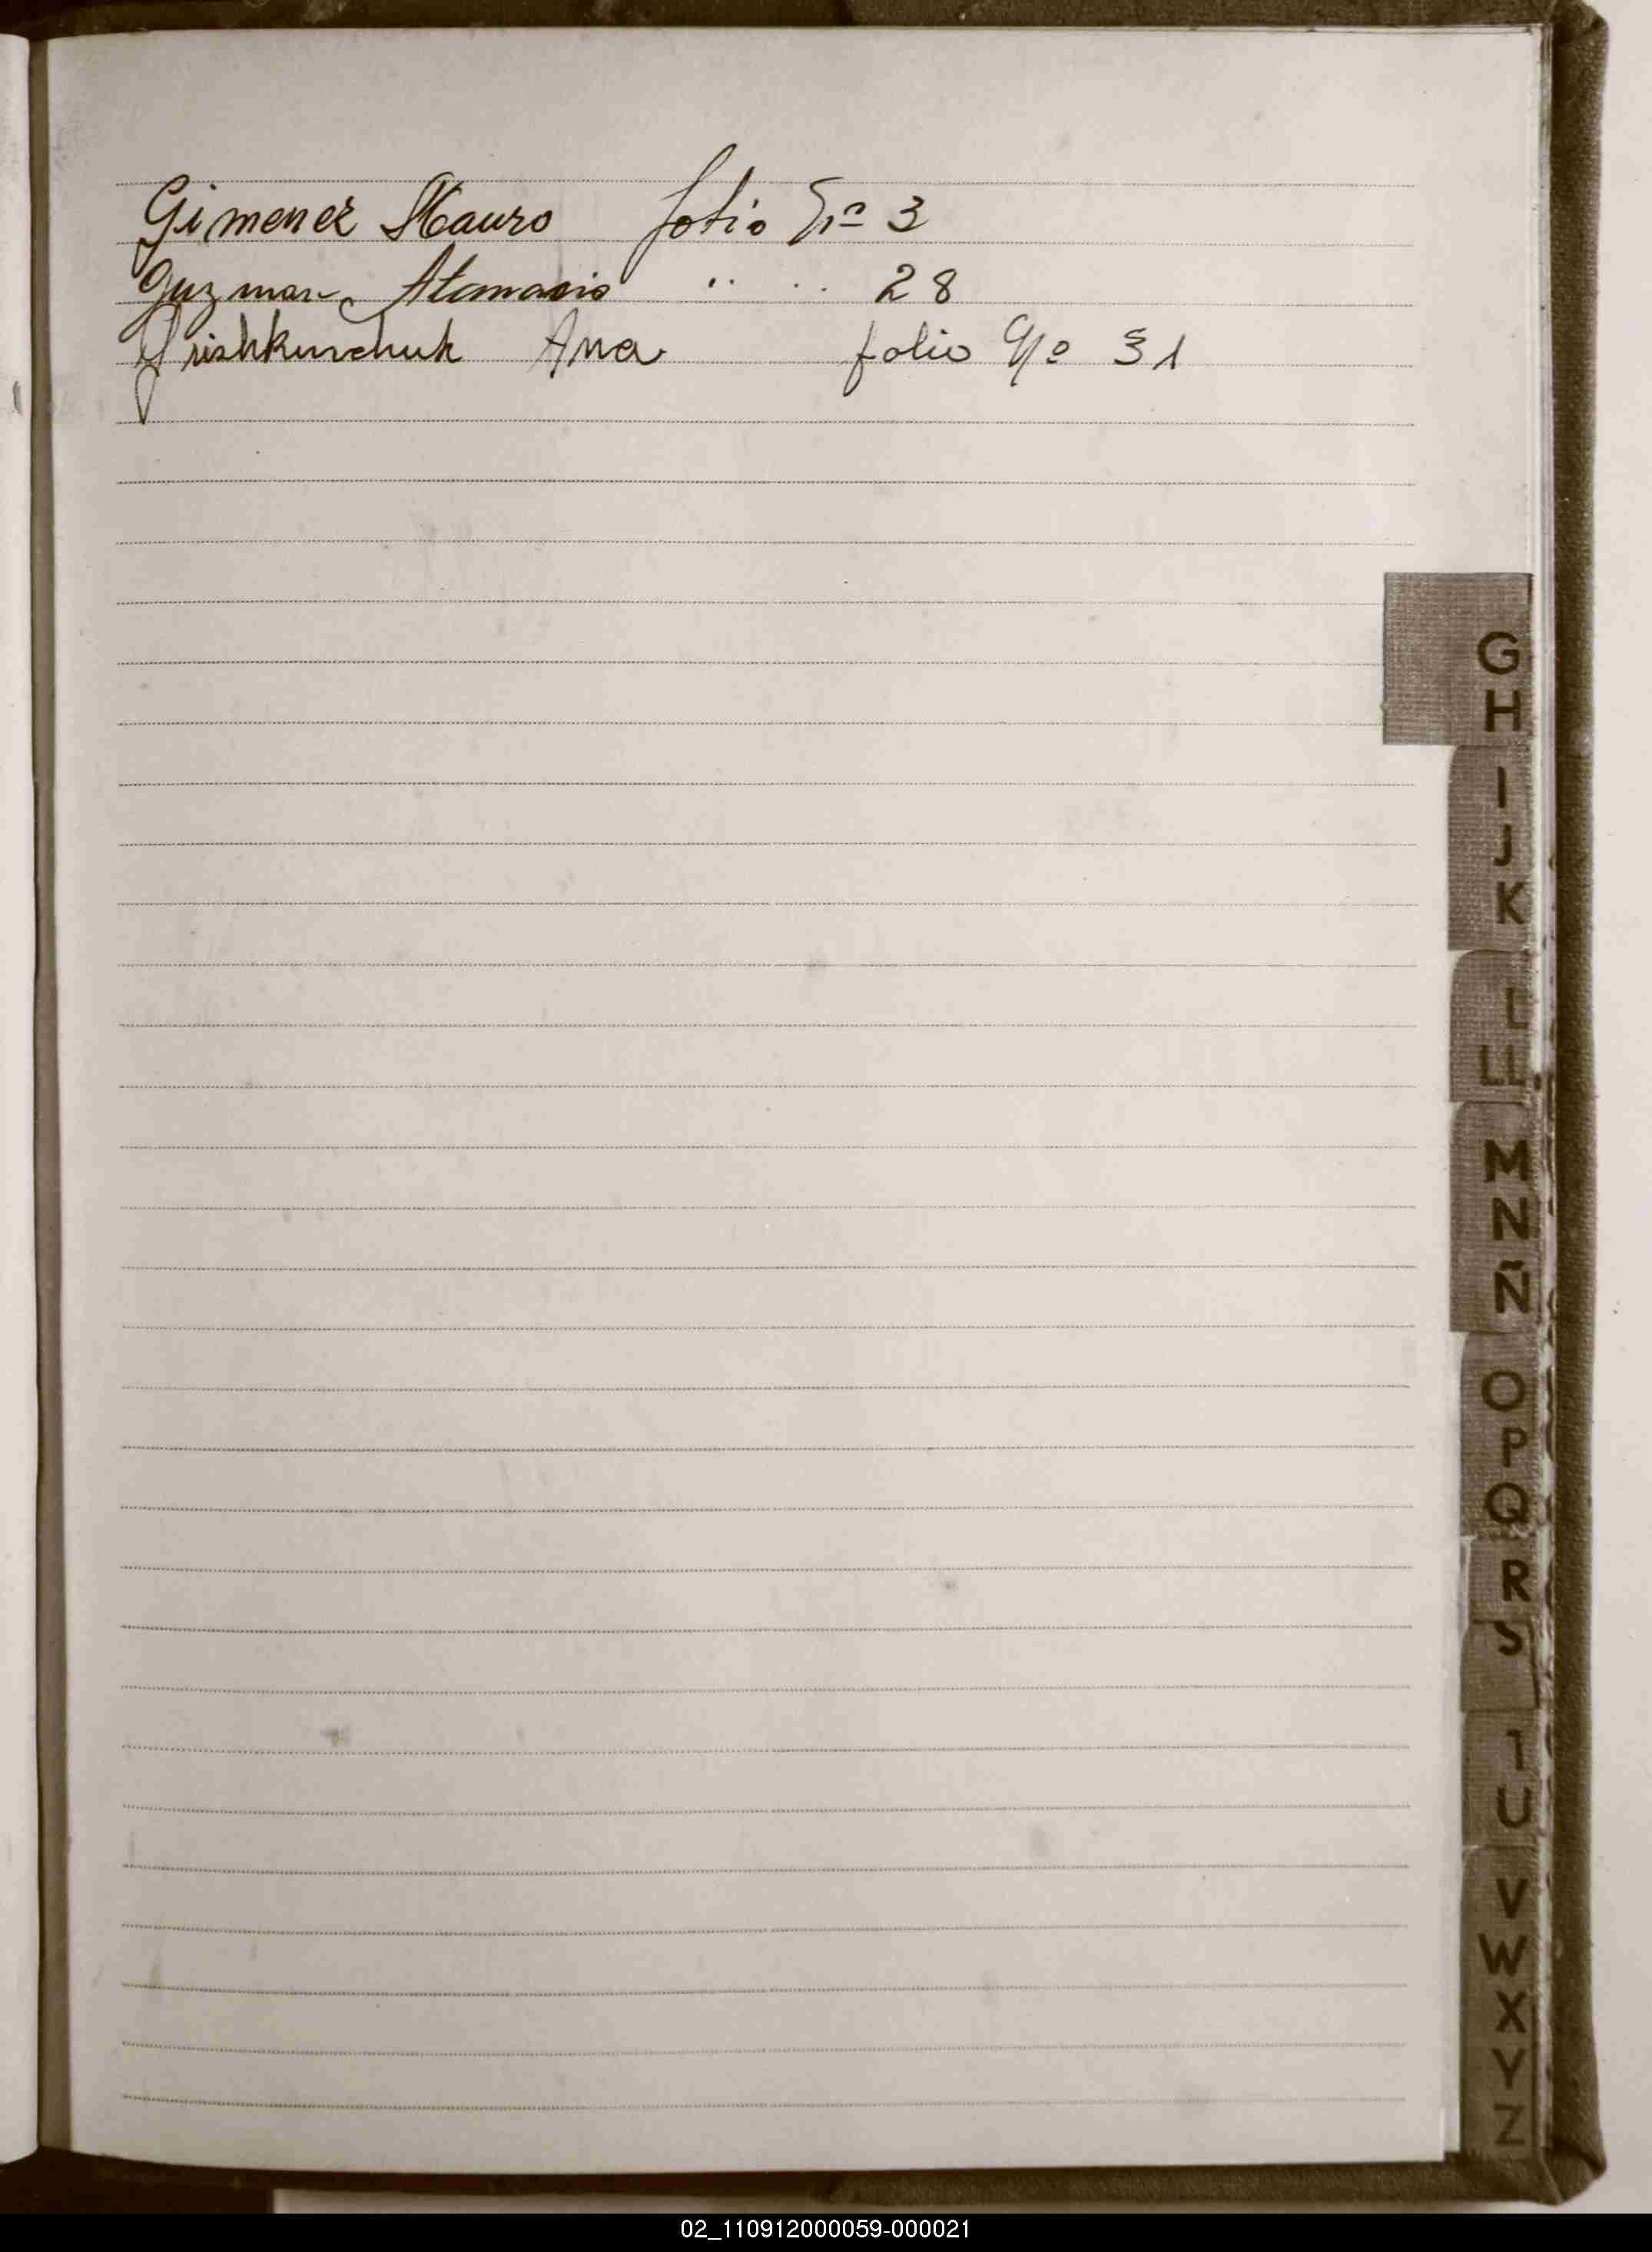 Gimenez Mauro folio Nº 3
Guzman Atanacio " " 28
Ana folio Nº 31
G
H
I
J
K
L
LL
M
N
Ñ
O
P
Q
R
S
T
U
V
W
X
Y
Z
02_110912000059-000021